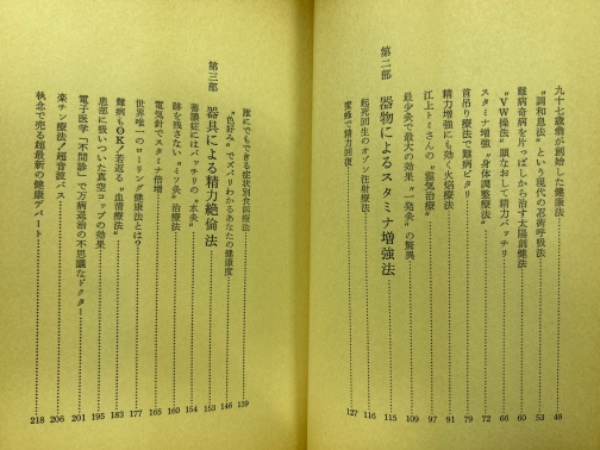 九十七歳翁が創始した健康法 48
“調和息法”という現代の忍術呼吸法 53
難病奇病を片っぱしから治す太陽創健法 60
“VW操法”頭なおして精力バッチリ 66
スタミナ増強“身体調整療法” 72
首吊り療法で難病ピタリ 79
精力増強にも効く火焔療法 91
江上トミさんの“霊気治療” 97
最少灸で最大の効果“一発灸”の驚異 109
第二部 器物によるスタミナ増強法 115
起死回生のオゾン注射療法 116
蜜蜂で精力回復 127
誰にでもできる症状別食餌療法 139
“色好み”でズバリわかるあなたの健康度 146
第三部 器具による精力絶倫法 153
蓄膿症にはバッチリの“水灸” 154
跡を残さない“ミツ灸”治療法 160
電気針でスタミナ倍増 165
世界唯一のローリング健康法とは? 177
難病もOK!若返る“血清療法” 183
患部に吸いついた真空コップの効果 195
電子医学「不問診」で万病退治の不思議なドクター 201
楽チン療法!超音波バス 206
執念で売る超最新の健康デパート 218